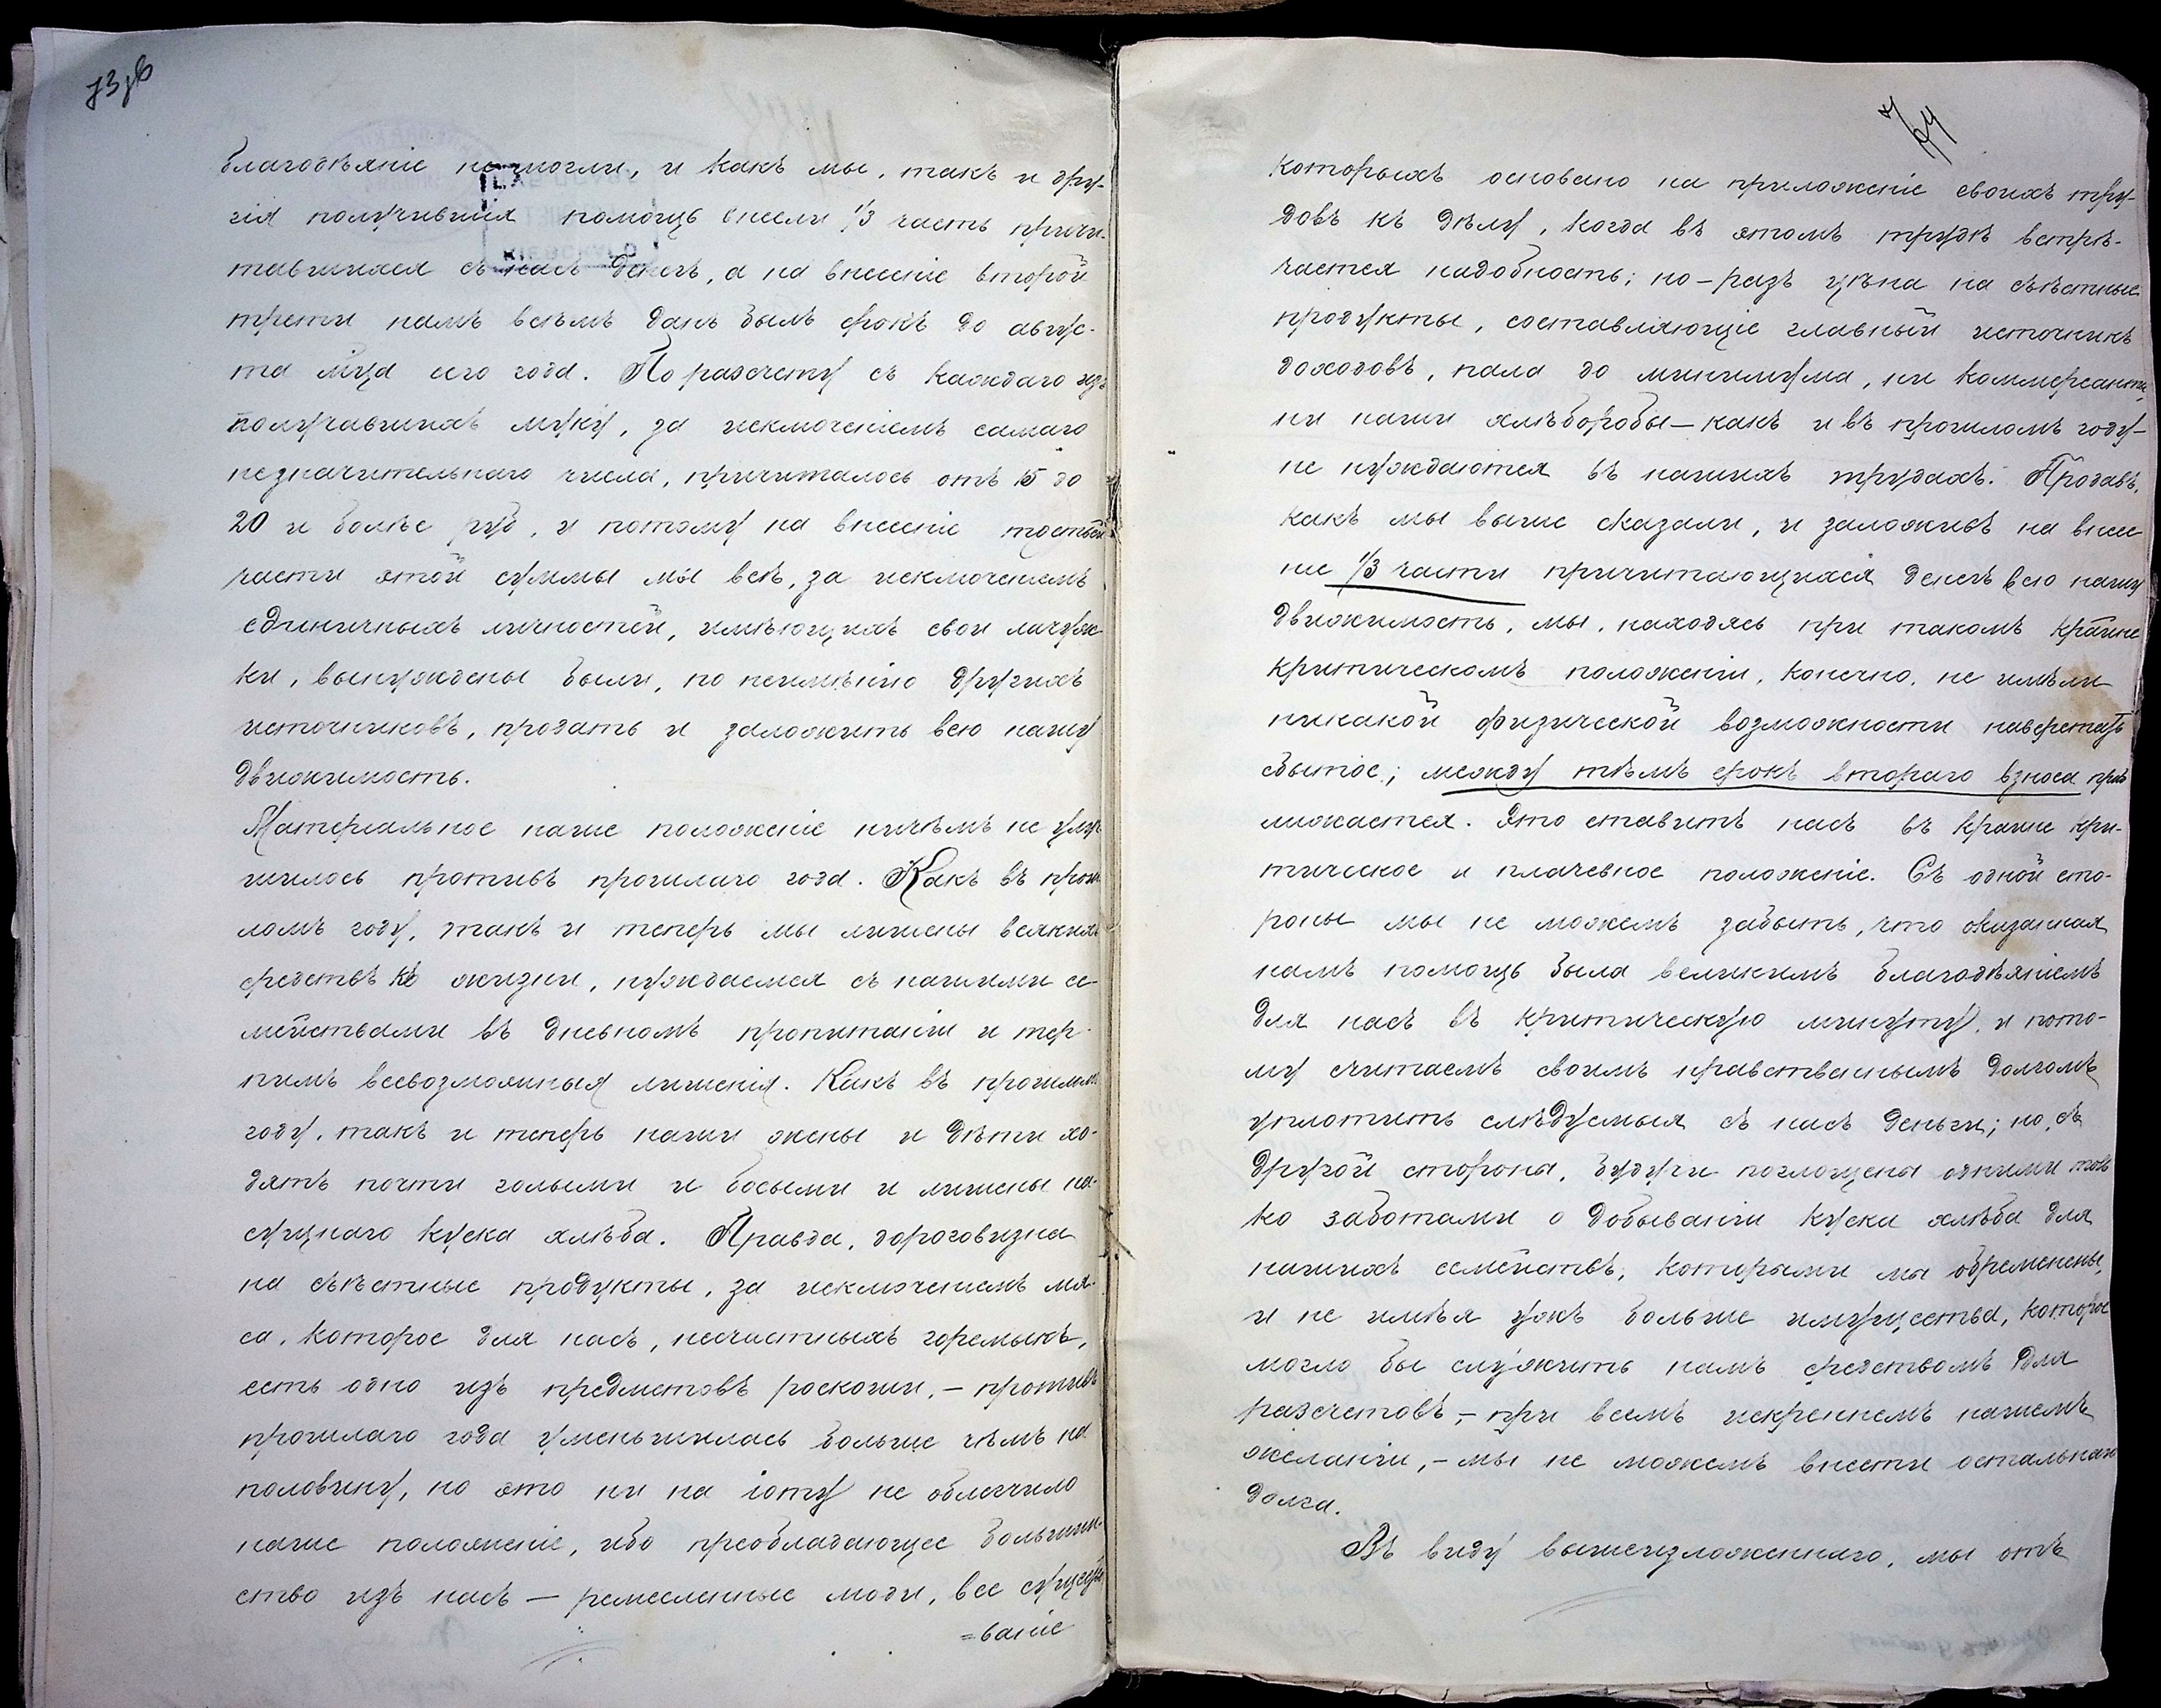 73 об
благодѣяніе помогли, и какъ мы, такъ и дру-
гія получившія помощь внесли 1/3 часть причи-
тавшихся съ насъ денегъ, а на внесеніе второй
трети намъ всѣмъ данъ былъ срокъ до авгус-
та мѣсца сего года. По разсчету съ каждаго изъ
получавшихъ муку, за исключеніемъ самаго
незначительнаго числа, причиталось отъ 15 до
20 и болѣе руб, и потому на внесеніе третьей
части этой суммы мы всѣ, за исключеніемъ
единичныхъ личностей, имѣющихъ свои лачуж-
ки, вынуждены были, по неимѣнію другихъ
источниковъ, продать и заложить всю нашу
движимость.
Матеріальное наше положеніе ничѣмъ не улуч
шилось противъ прошлаго года. Какъ въ прош
ломъ году, такъ и теперь мы лишены всякихъ
средствъ къ жизни, нуждаемся съ нашими се-
мействами въ дневномъ пропитаніи и тер-
пимъ всевозможныя лишенія. Какъ въ прошломъ
году, такъ и теперь наши жены и дѣти хо-
дятъ почти голыми и босыми и лишены на-
сущнаго куска хлѣба. Правда, дороговизна
на съѣстные продукты, за исключеніемъ мя-
са, которое для насъ, несчастныхъ горемыкъ,
есть одно изъ предметовъ роскоши, – противъ
прошлаго года уменьшилась больше чѣмъ на
половину, но это ни на іоту не облегчило
наше положеніе, ибо преобладающее большин-
ство изъ насъ – ремесленные люди, все существо
=ваніе
74
которыхъ основано на приложеніе своихъ тру-
довъ къ дѣлу, когда въ этомъ трудѣ встрѣ-
чается надобность; но – разъ цѣна на съѣстные
продукты, составляющіе главный источникъ
доходовъ, пала до минимума, ни коммерсанты,
ни наши хлѣборобы – какъ и въ прошломъ году –
не нуждаются въ нашихъ трудахъ. Продавъ,
какъ мы выше сказали, и заложивъ на внесе
ніе 1/3 части причитающихся денегъ всю нашу
движимость, мы, находясь при такомъ крайне
критическомъ положеніи, конечно, не имѣли
никакой физической возможности наверстать
сбытое; между тѣмъ срокъ второго взноса при
лижается. Это ставитъ насъ въ крайне кри-
тическое и плачевное положеніе. Съ одной сто-
роны мы не можемъ забыть, что оказанная
намъ помощь была великимъ благодѣяніемъ
для насъ въ критическую минуту, и пото-
му считаемъ своимъ нравственнымъ долгомъ
уплотить слѣдуемыя съ насъ деньги; но, съ
другой стороны, будучи поглощены одними толь
ко заботами о добываніи куска хлѣба для
нашихъ семействъ, которыми мы обременены,
и не имѣя ужъ больше имущества, которое
могло бы служить намъ средствомъ для
разсчетовъ, – при всемъ искреннемъ нашемъ
желаніи, – мы не можемъ внести остальнаго
долга.
Въ виду вышеизложеннаго, мы отъ